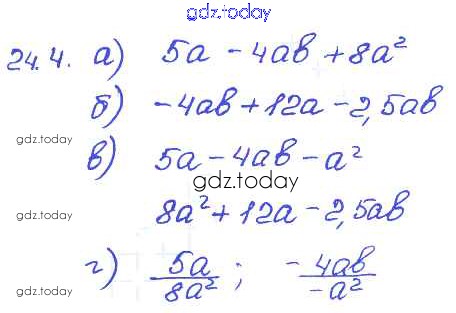 gdz.today
24.4. а) 5a - 4ab + 8a²
б) -4ab + 12a - 2,5ab
gdz.today
в) 5a - 4ab - a²
gdz.today
gdz.today 8a² + 12a - 2,5ab
г) 5a/8a² ; -4ab/-a²
gdz.today